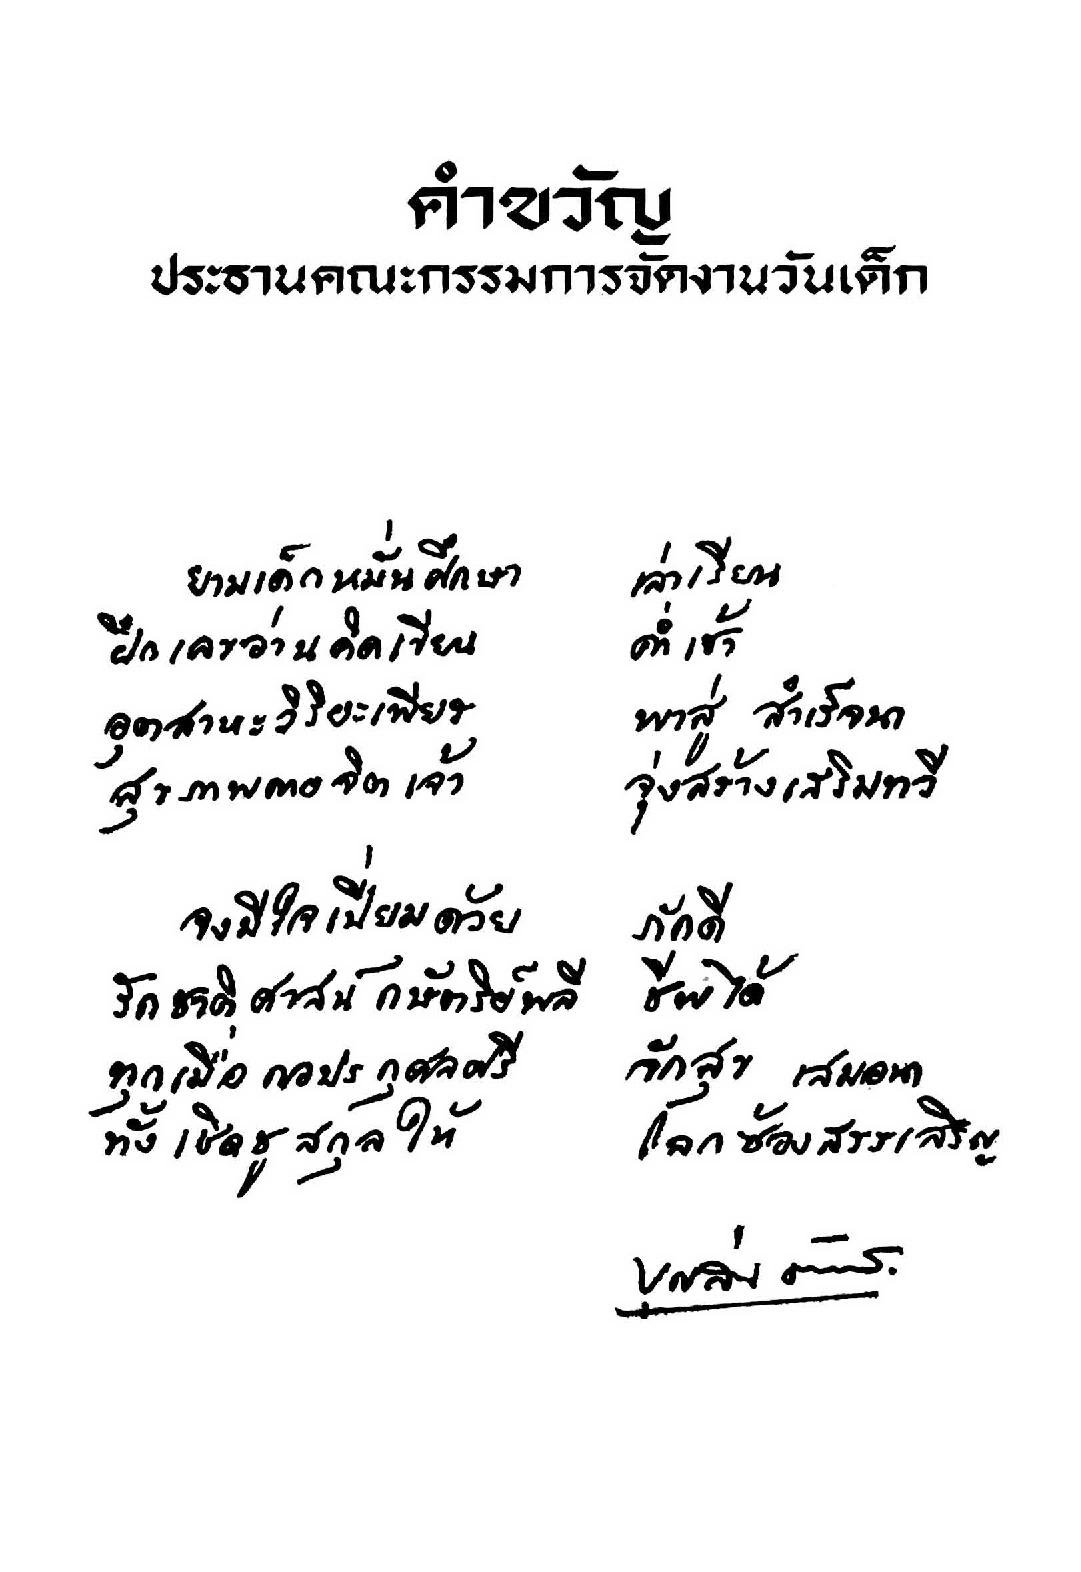 คำขวัญ
ประธานคณะกรรมการจัดงานวันเด็ก
ยามเด็กหมั่นศึกษา เล่าเรียน
ฝึกเลขอ่านคิดเขียน ค่ำเช้า
อุตสาหะวิริยะเพียร พาสู่ สำเร็จนา
สุขภาพกายจิตเจ้า จุ่งสร้างเสริมทวี
จงมีใจเปี่ยมด้วย ภักดี
รักชาติศาสน์กษัตริย์พลี ชีพได้
ทุกเมื่อกอปรกุศลศรี ภักสุข เสมอนา
ทั้งเชิดชูสกุลให้ โลกซ้องสรรเสริญ